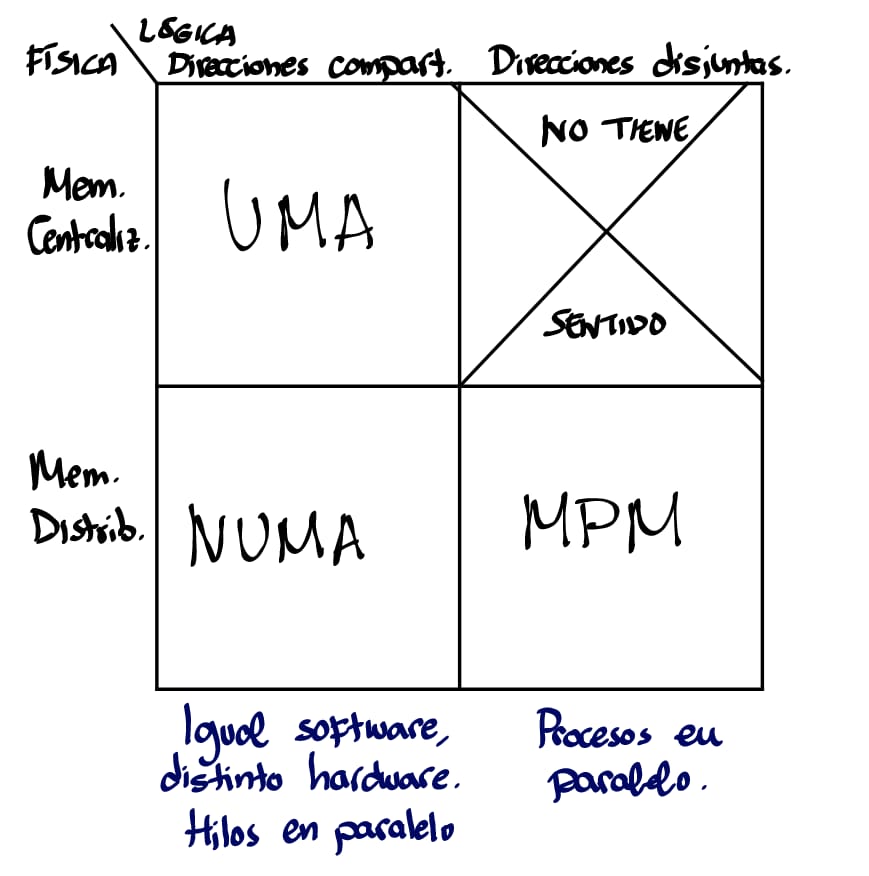 LÓGICA
FÍSICA
Direcciones compart. Direcciones disjuntas.
Mem.
Centraliz.
UMA
NO TIENE
SENTIDO
Mem.
Distrib.
NUMA
MPM
Igual software,
distinto hardware.
Hilos en paralelo
Procesos en
paralelo.